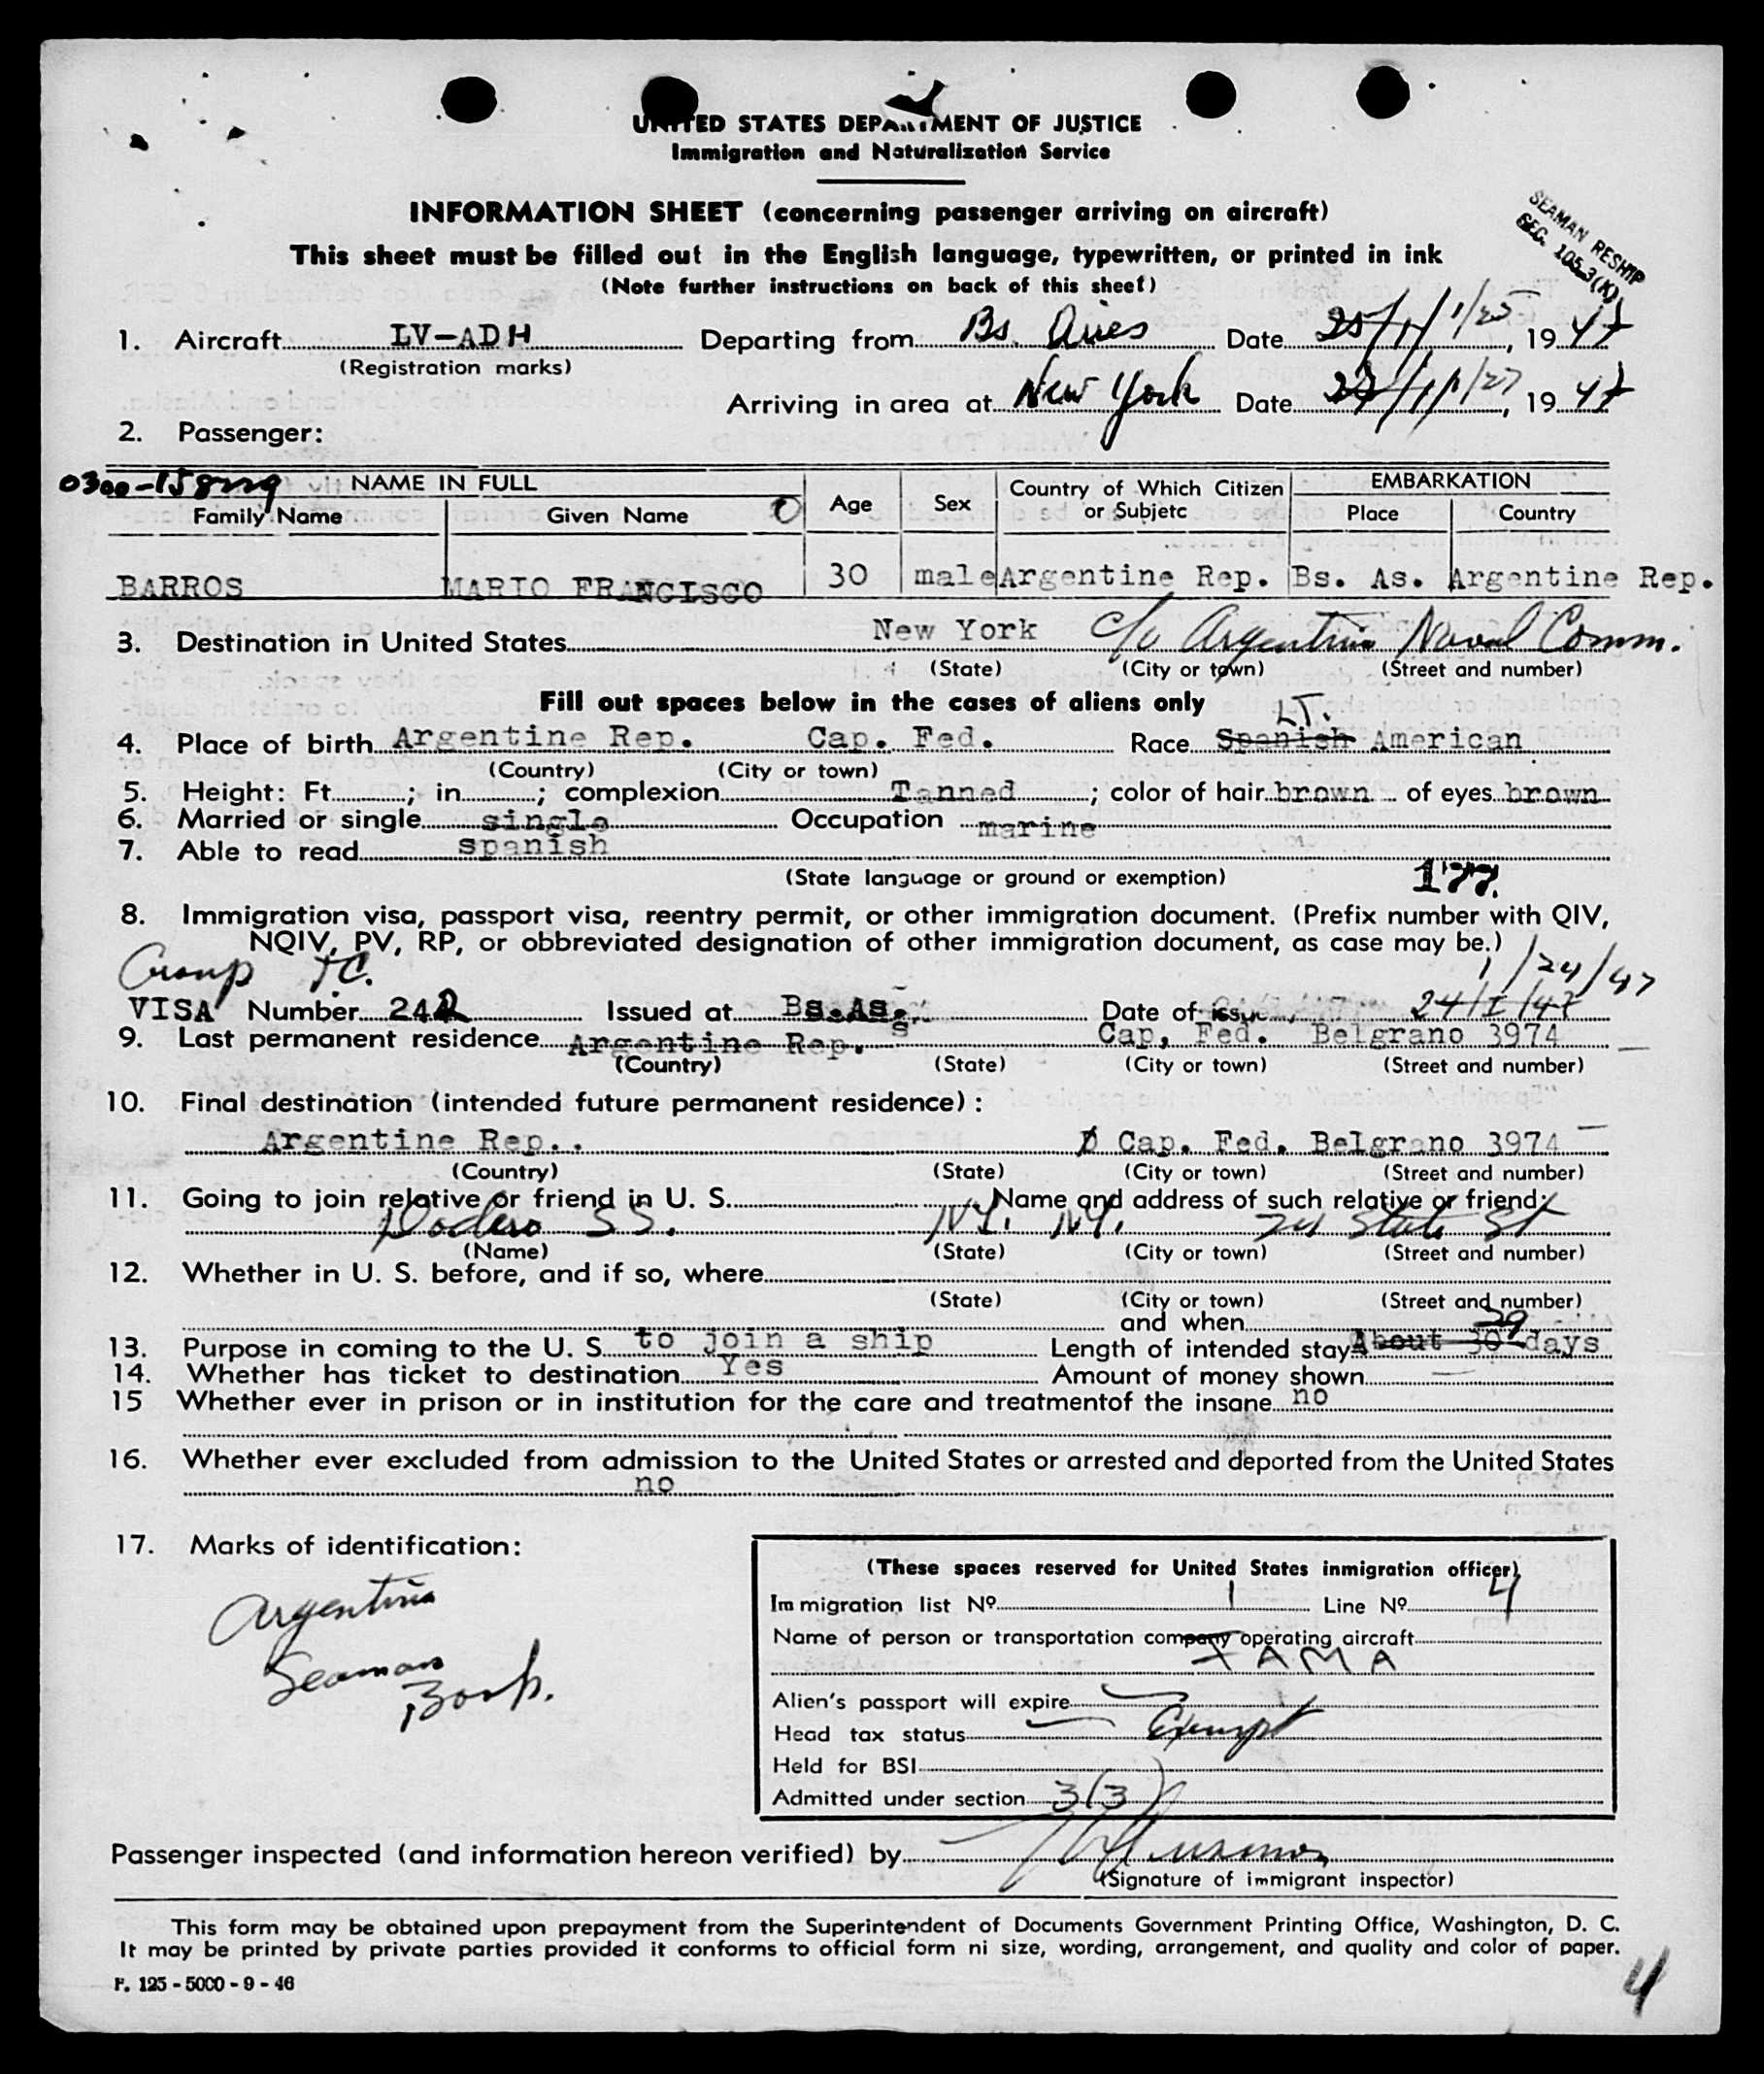 UNITED STATES DEPARTMENT OF JUSTICE
Immigration and Naturalization Service
INFORMATION SHEET (concerning passenger arriving on aircraft)
This sheet must be filled out in the English language, typewritten, or printed in ink
(Note further instructions on back of this sheet)
SEAMAN RESHIP
SEC. 105.3(K)
1. Aircraft LV-ADH Departing from Bs. Aires Date 25/1/ 1/25, 1947
(Registration marks)
Arriving in area at New York Date 1/27, 1947
2. Passenger:
NAME IN FULL Age Sex Country of Which Citizen or Subjetc EMBARKATION
Family Name Given Name Place Country
BARROS MARIO FRANCISCO 30 male Argentine Rep. Bs. As. Argentine Rep.
3. Destination in United States New York c/o Argentine Naval Comm.
(State) (City or town) (Street and number)
Fill out spaces below in the cases of aliens only
LT.
4. Place of birth Argentine Rep. Cap. Fed. Race Spanish American
(Country) (City or town)
5. Height: Ft. ; in. ; complexion Tanned ; color of hair brown of eyes brown
6. Married or single single Occupation marine
7. Able to read spanish
(State language or ground or exemption) 177.
8. Immigration visa, passport visa, reentry permit, or other immigration document. (Prefix number with QIV,
NQIV, PV, RP, or obbreviated designation of other immigration document, as case may be.)
Group T.C. 1/24/47
VISA Number 242 Issued at Bs.As. Date of issue 24/I/47
9. Last permanent residence Argentine Rep. s Cap, Fed. Belgrano 3974
(Country) (State) (City or town) (Street and number)
10. Final destination (intended future permanent residence) :
Argentine Rep.. Cap. Fed. Belgrano 3974
(Country) (State) (City or town) (Street and number)
11. Going to join relative or friend in U. S. Name and address of such relative or friend:
Dodero SS. N.Y. N.Y. 24 State St
(Name) (State) (City or town) (Street and number)
12. Whether in U. S. before, and if so, where
(State) (City or town) (Street and number)
and when
29
13. Purpose in coming to the U. S. to join a ship Length of intended stay About 30 days
14. Whether has ticket to destination Yes Amount of money shown
15 Whether ever in prison or in institution for the care and treatmentof the insane no
16. Whether ever excluded from admission to the United States or arrested and deported from the United States
no
17. Marks of identification:
Argentine
Seaman
Book.
(These spaces reserved for United States inmigration officer)
Immigration list Nº 1 Line Nº 4
Name of person or transportation company operating aircraft
FAMA
Alien's passport will expire
Head tax status Exempt
Held for BSI
Admitted under section 3(3)
Passenger inspected (and information hereon verified) by
(Signature of immigrant inspector)
This form may be obtained upon prepayment from the Superintendent of Documents Government Printing Office, Washington, D. C.
It may be printed by private parties provided it conforms to official form ni size, wording, arrangement, and quality and color of paper.
F. 125 - 5000 - 9 - 46
4